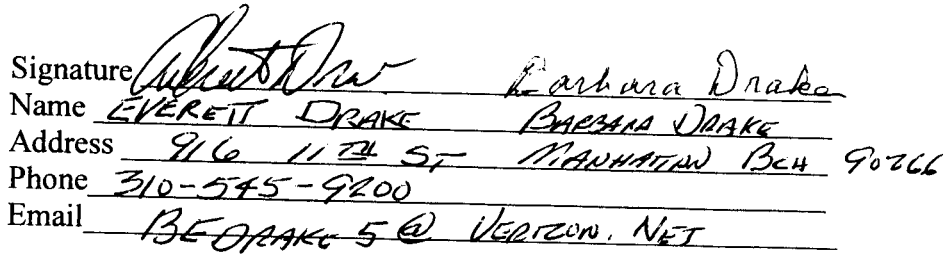 Signature Everett Drake Barbara Drake
Name EVERETT DRAKE BARBARA DRAKE
Address 916 11TH ST MANHATTAN BCH 90266
Phone 310-545-9200
Email BEDRAKE5@VERIZON.NET